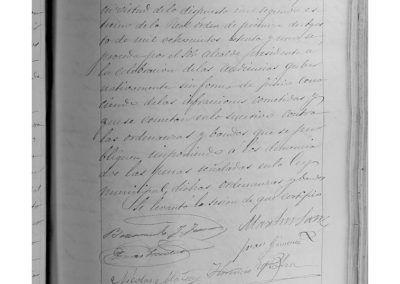 en virtud de lo dispuesto en el segundo es
tremo de la Real orden de primero de Agos
to de mil ochocientos setenta y uno se
proceda por el Sr Alcalde presidente a
la celebracion de las audiencias guber
nativamente sin forma de juicio cono
ciendo de las infracciones cometidas y
que se cometan en lo sucesivo contra
las ordenanzas y bandos que se pu
bliquen imponiendo a los denuncia
dos las penas señaladas en la ley
municipal, dichas ordenanzas y bandos
Se levanta la sesion de que certifico
Juan Gimenez